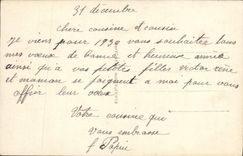 31 decembre
chere cousine et cousin
je viens pour 1930 vous souhaiter tous
mes vœux de santé et heureuse année
ainsi qu'a vos petites filles victor rene
et maman se joignent a moi pour vous
offrir leur vœux
Votre cousine qui
vous embrasse